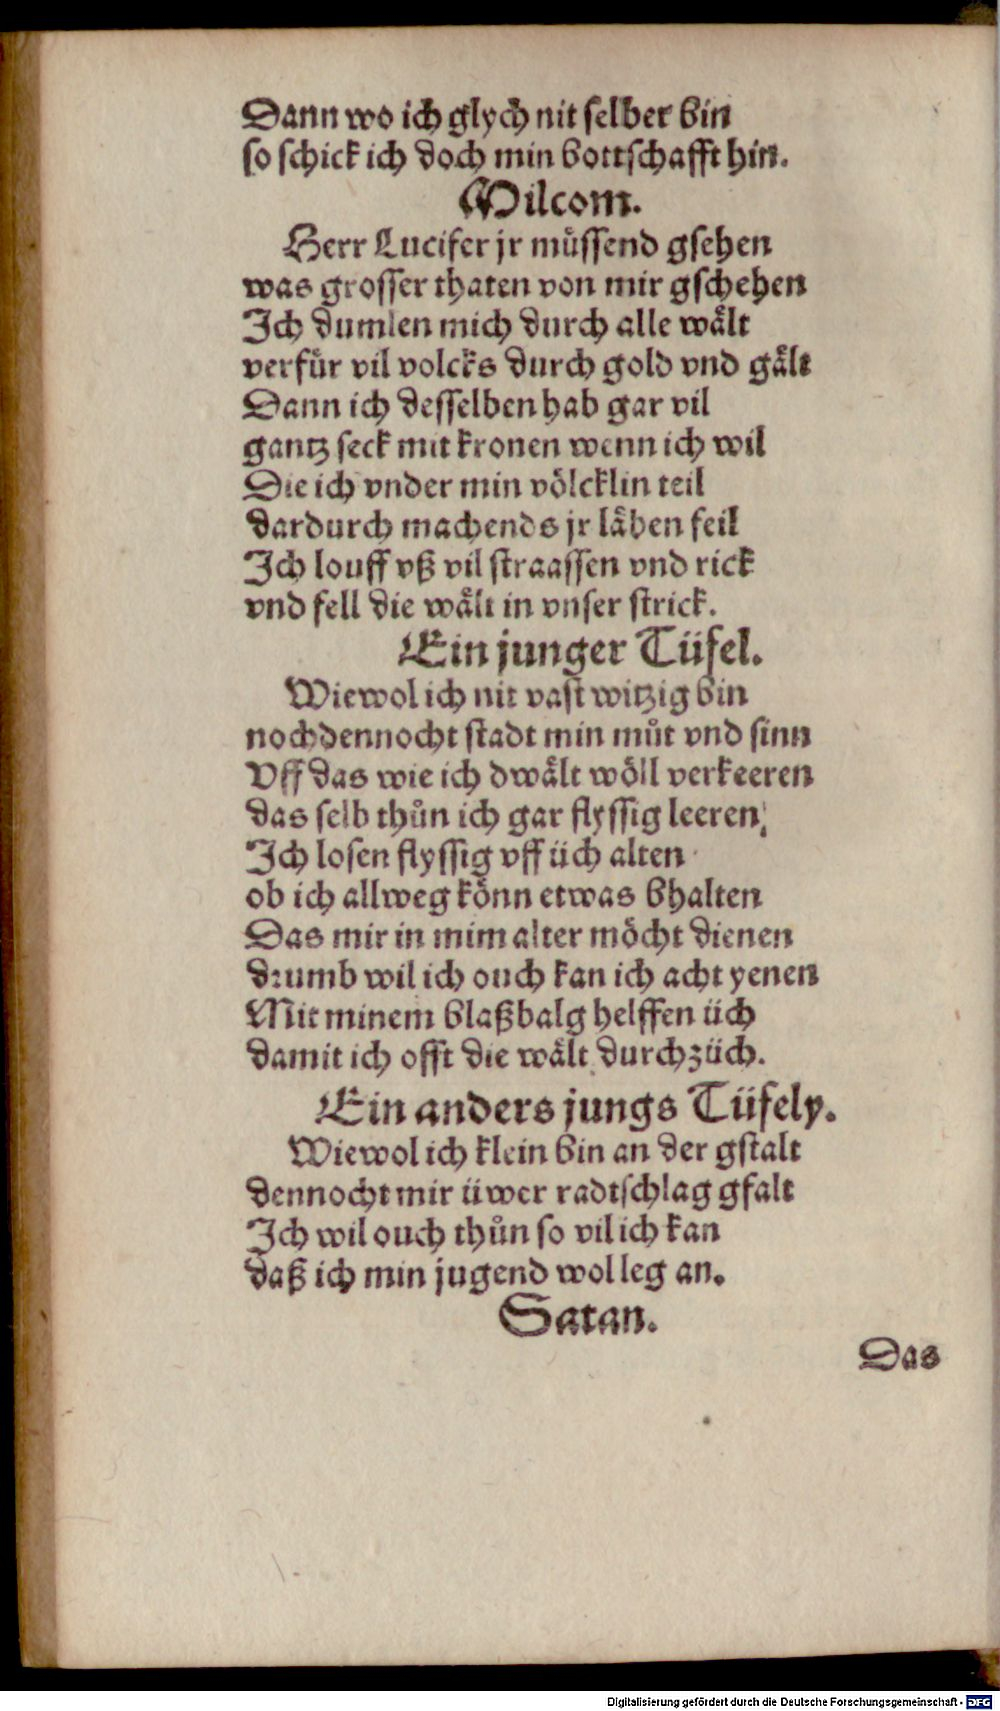 Dann wo ich glych nit selber bin
so schick ich doch min bottschafft hin.
Wilcom.
Herr Lucifer jr müssend gsehen
was grosser thaten von mir gschehen
Ich dumlen mich durch alle wält
verfür vil volcks durch gold vnd gält
Dann ich desselben hab gar vil
gantz seck mit kronen wenn ich wil
Die ich vnder min völcklin teil
dardurch machends jr läben feil
Ich louff vß vil straassen vnd rick
vnd fell die wält in vnser strick.
Ein junger Tüfel.
Wiewol ich nit vast witzig bin
nochdennocht stadt min můt vnd sinn
Vff das wie ich dwält wöll verkeeren
das selb thůn ich gar flyssig leeren,
Ich losen flyssig vff üch alten
ob ich allweg könn etwas bhalten
Das mir in mim alter möcht dienen
drumb wil ich ouch kan ich acht yenen
Mit minem blaßbalg helffen üch
damit ich offt die wält durchzüch.
Ein anders jungs Tüfely.
Wiewol ich klein bin an der gstalt
dennocht mir üwer radtschlag gfalt
Ich wil ouch thůn so vil ich kan
daß ich min jugend wol leg an.
Satan.
Das
Digitalisierung gefördert durch die Deutsche Forschungsgemeinschaft - DFG